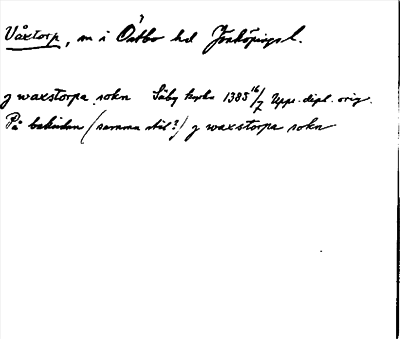 Våxtorp, sn i Östbo hd Jönköpings l.
j waxstorpa sokn Säby kyrko 1385 16/7 Upps. dipl. orig.
På baksidan (samma stil?) j waxstorpa sokn